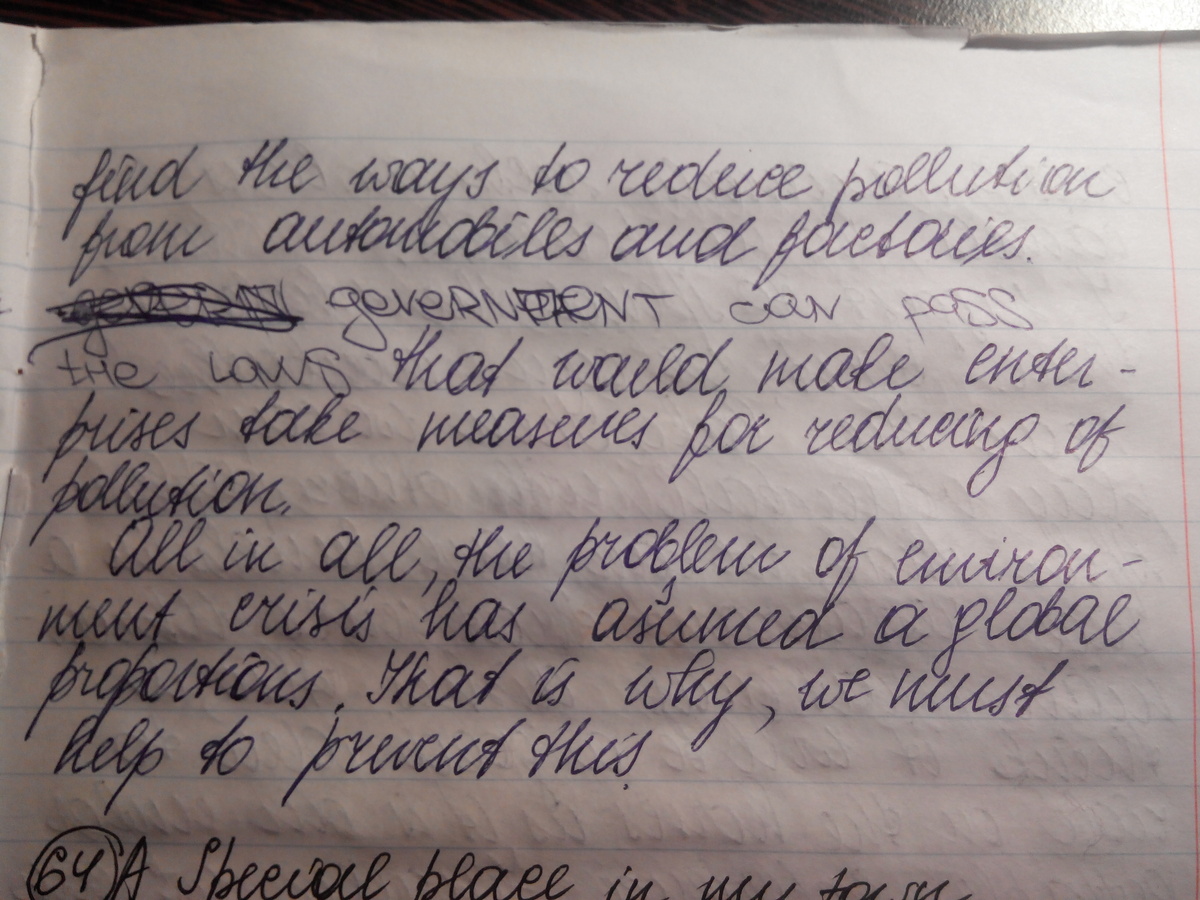 find the ways to reduce pollution
from automobiles and factories.
government can pass
the laws that would make enter-
prises take measures for reducing of
pollution.
All in all, the problem of environ-
ment crisis has asumed a global
proportions. That is why, we must
help to prevent this.
64 A Special place in my town